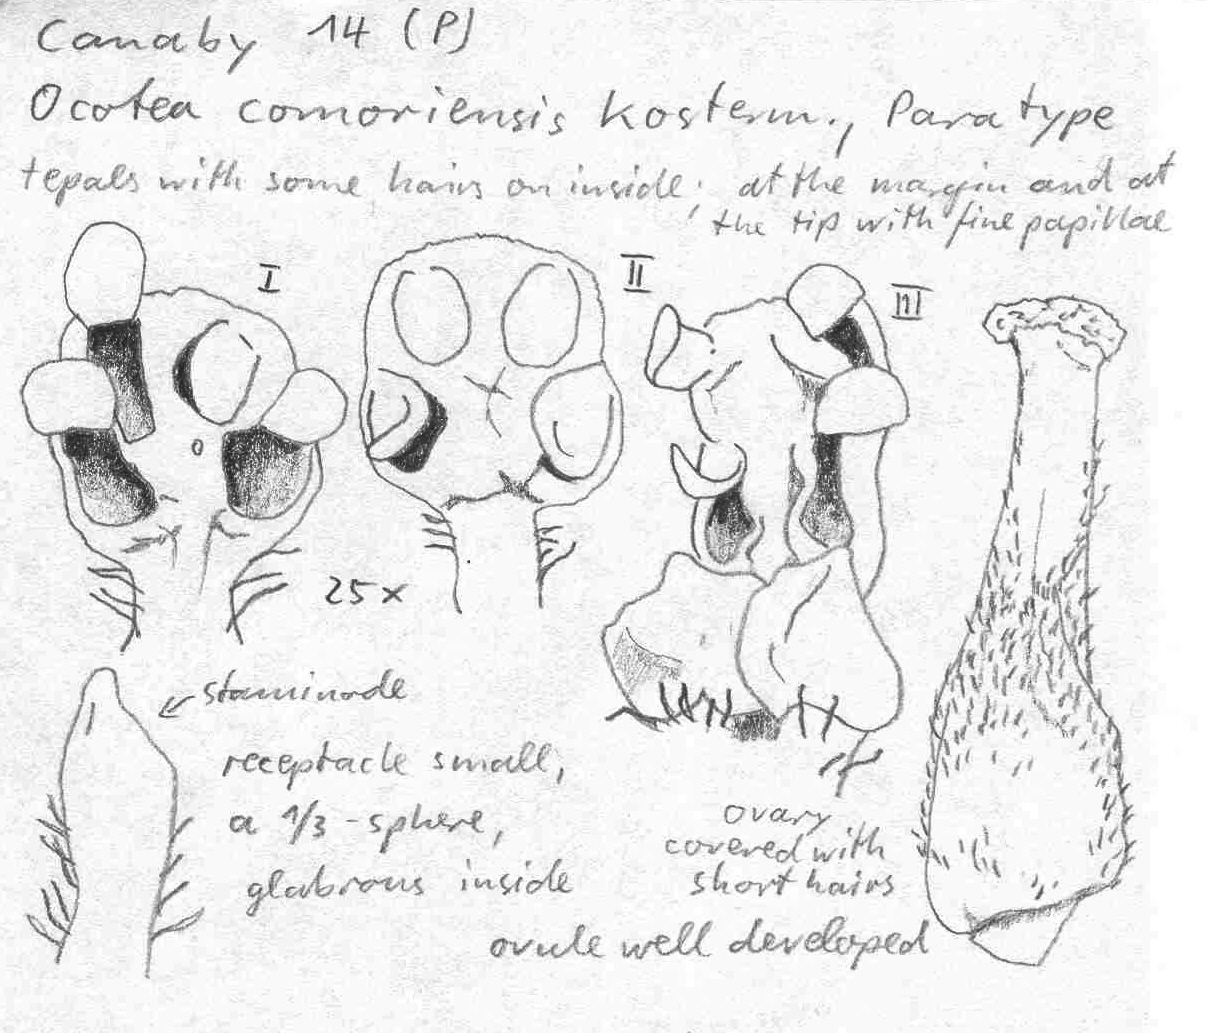 Canaby 14 (P)
Ocotea comoriensis Kosterm., Paratype
tepals with some hairs on inside; at the margin and at
the tip with fine papillae
I
II
III
25x
staminode
receptacle small,
a 1/3-sphere,
glabrous inside
ovary
covered with
short hairs
ovule well developed